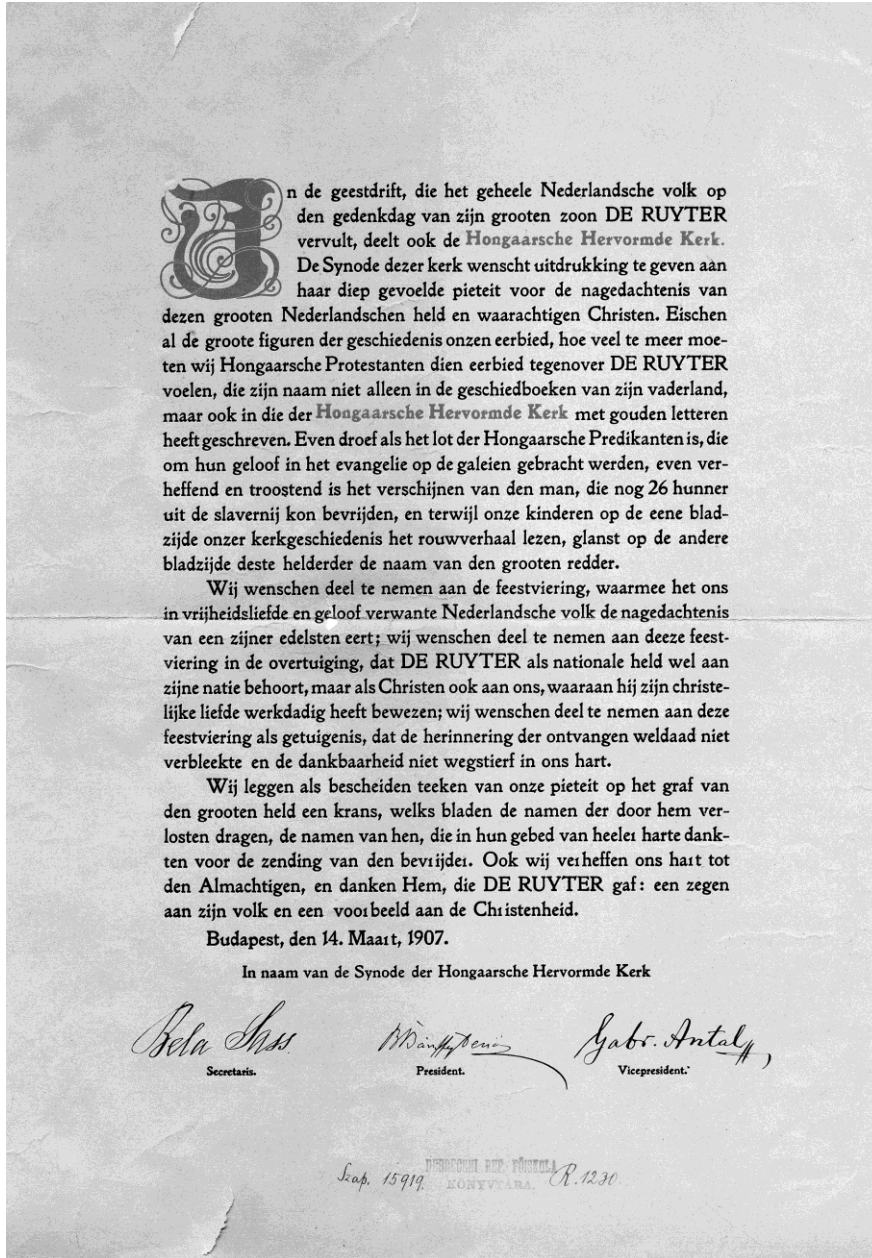 In de geestdrift, die het geheele Nederlandsche volk op
den gedenkdag van zijn grooten zoon DE RUYTER
vervult, deelt ook de Hongaarsche Hervormde Kerk.
De Synode dezer kerk wenscht uitdrukking te geven aan
haar diep gevoelde pieteit voor de nagedachtenis van
dezen grooten Nederlandschen held en waarachtigen Christen. Eischen
al de groote figuren der geschiedenis onzen eerbied, hoe veel te meer moe-
ten wij Hongaarsche Protestanten dien eerbied tegenover DE RUYTER
voelen, die zijn naam niet alleen in de geschiedboeken van zijn vaderland,
maar ook in die der Hongaarsche Hervormde Kerk met gouden letteren
heeft geschreven. Even droef als het lot der Hongaarsche Predikanten is, die
om hun geloof in het evangelie op de galeien gebracht werden, even ver-
heffend en troostend is het verschijnen van den man, die nog 26 hunner
uit de slavernij kon bevrijden, en terwijl onze kinderen op de eene blad-
zijde onzer kerkgeschiedenis het rouwverhaal lezen, glanst op de andere
bladzijde deste helderder de naam van den grooten redder.
Wij wenschen deel te nemen aan de feestviering, waarmee het ons
in vrijheidsliefde en geloof verwante Nederlandsche volk de nagedachtenis
van een zijner edelsten eert; wij wenschen deel te nemen aan deeze feest-
viering in de overtuiging, dat DE RUYTER als nationale held wel aan
zijne natie behoort, maar als Christen ook aan ons, waaraan hij zijn christe-
lijke liefde werkdadig heeft bewezen; wij wenschen deel te nemen aan deze
feestviering als getuigenis, dat de herinnering der ontvangen weldaad niet
verbleekte en de dankbaarheid niet wegstierf in ons hart.
Wij leggen als bescheiden teeken van onze pieteit op het graf van
den grooten held een krans, welks bladen de namen der door hem ver-
losten dragen, de namen van hen, die in hun gebed van heeler harte dank-
ten voor de zending van den bevrijder. Ook wij verheffen ons hart tot
den Almachtigen, en danken Hem, die DE RUYTER gaf: een zegen
aan zijn volk en een voorbeeld aan de Christenheid.
Budapest, den 14. Maart, 1907.
In naam van de Synode der Hongaarsche Hervormde Kerk
Bela Sass. Gabr. Antal
Secretaris. President. Vicepresident.
DEBRECZENI REF. FŐISKOLA
Szap. 15919. KÖNYVTÁRA. R. 1230.